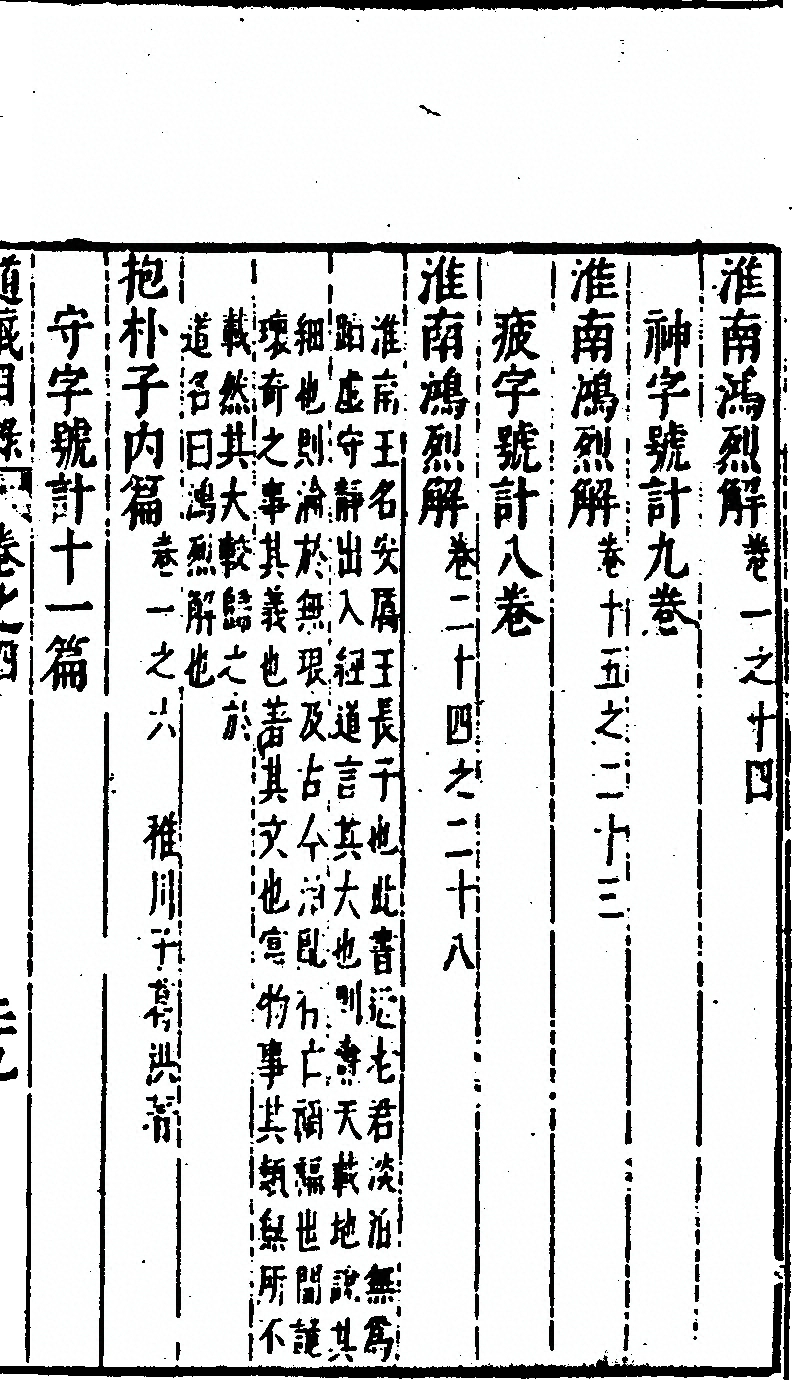 淮南鴻烈解卷一之十四
神字號計九卷
淮南鴻烈解卷十五之二十三
疲字號計八卷
淮南鴻烈解卷二十四之二十八
淮南王名安厲王長子也此書從老君淡泊無爲
蹈虛守靜出入經道言其大也則燾天載地說其
細也則淪於無垠及古今治亂存亡禍福世間詭
瓌奇之事其義也著其文也富物事其類無所不
載然其大較歸之於
道名曰鴻烈解也
抱朴子内篇卷一之六 稚川子葛洪著
守字號計十一篇
道藏目錄 卷之四